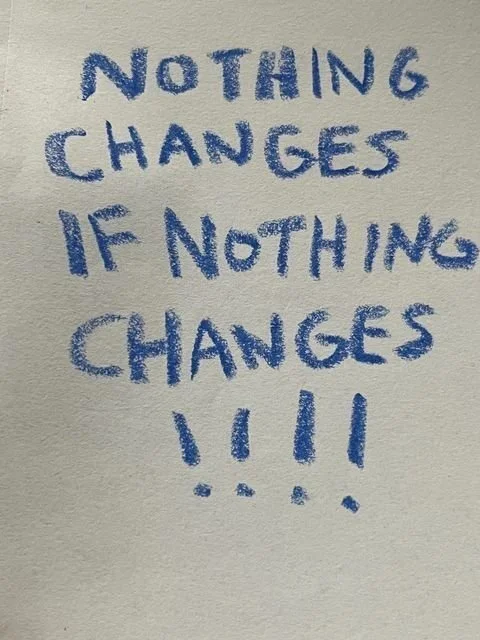 NOTHING
CHANGES
IF NOTHING
CHANGES
!!!!